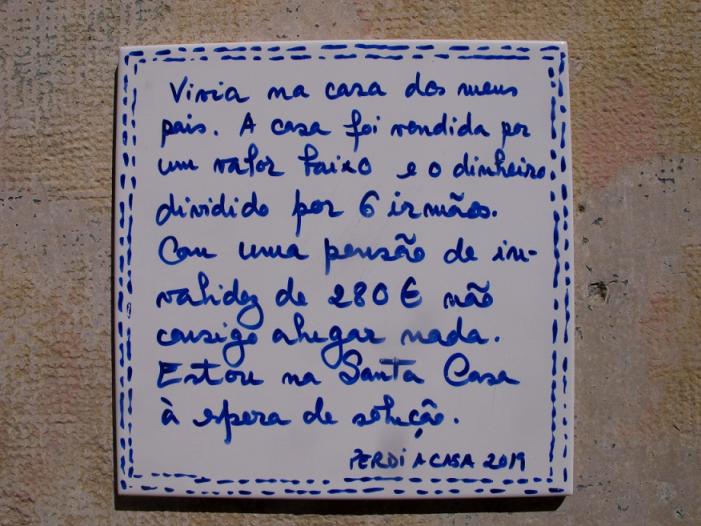 Vivia na casa dos meus
pais. A casa foi vendida por
um valor baixo e o dinheiro
dividido por 6 irmãos.
Com uma pensão de in-
validez de 280€ não
consigo alugar nada.
Estou na Santa Casa
à espera de solução.
PERDI A CASA 2019